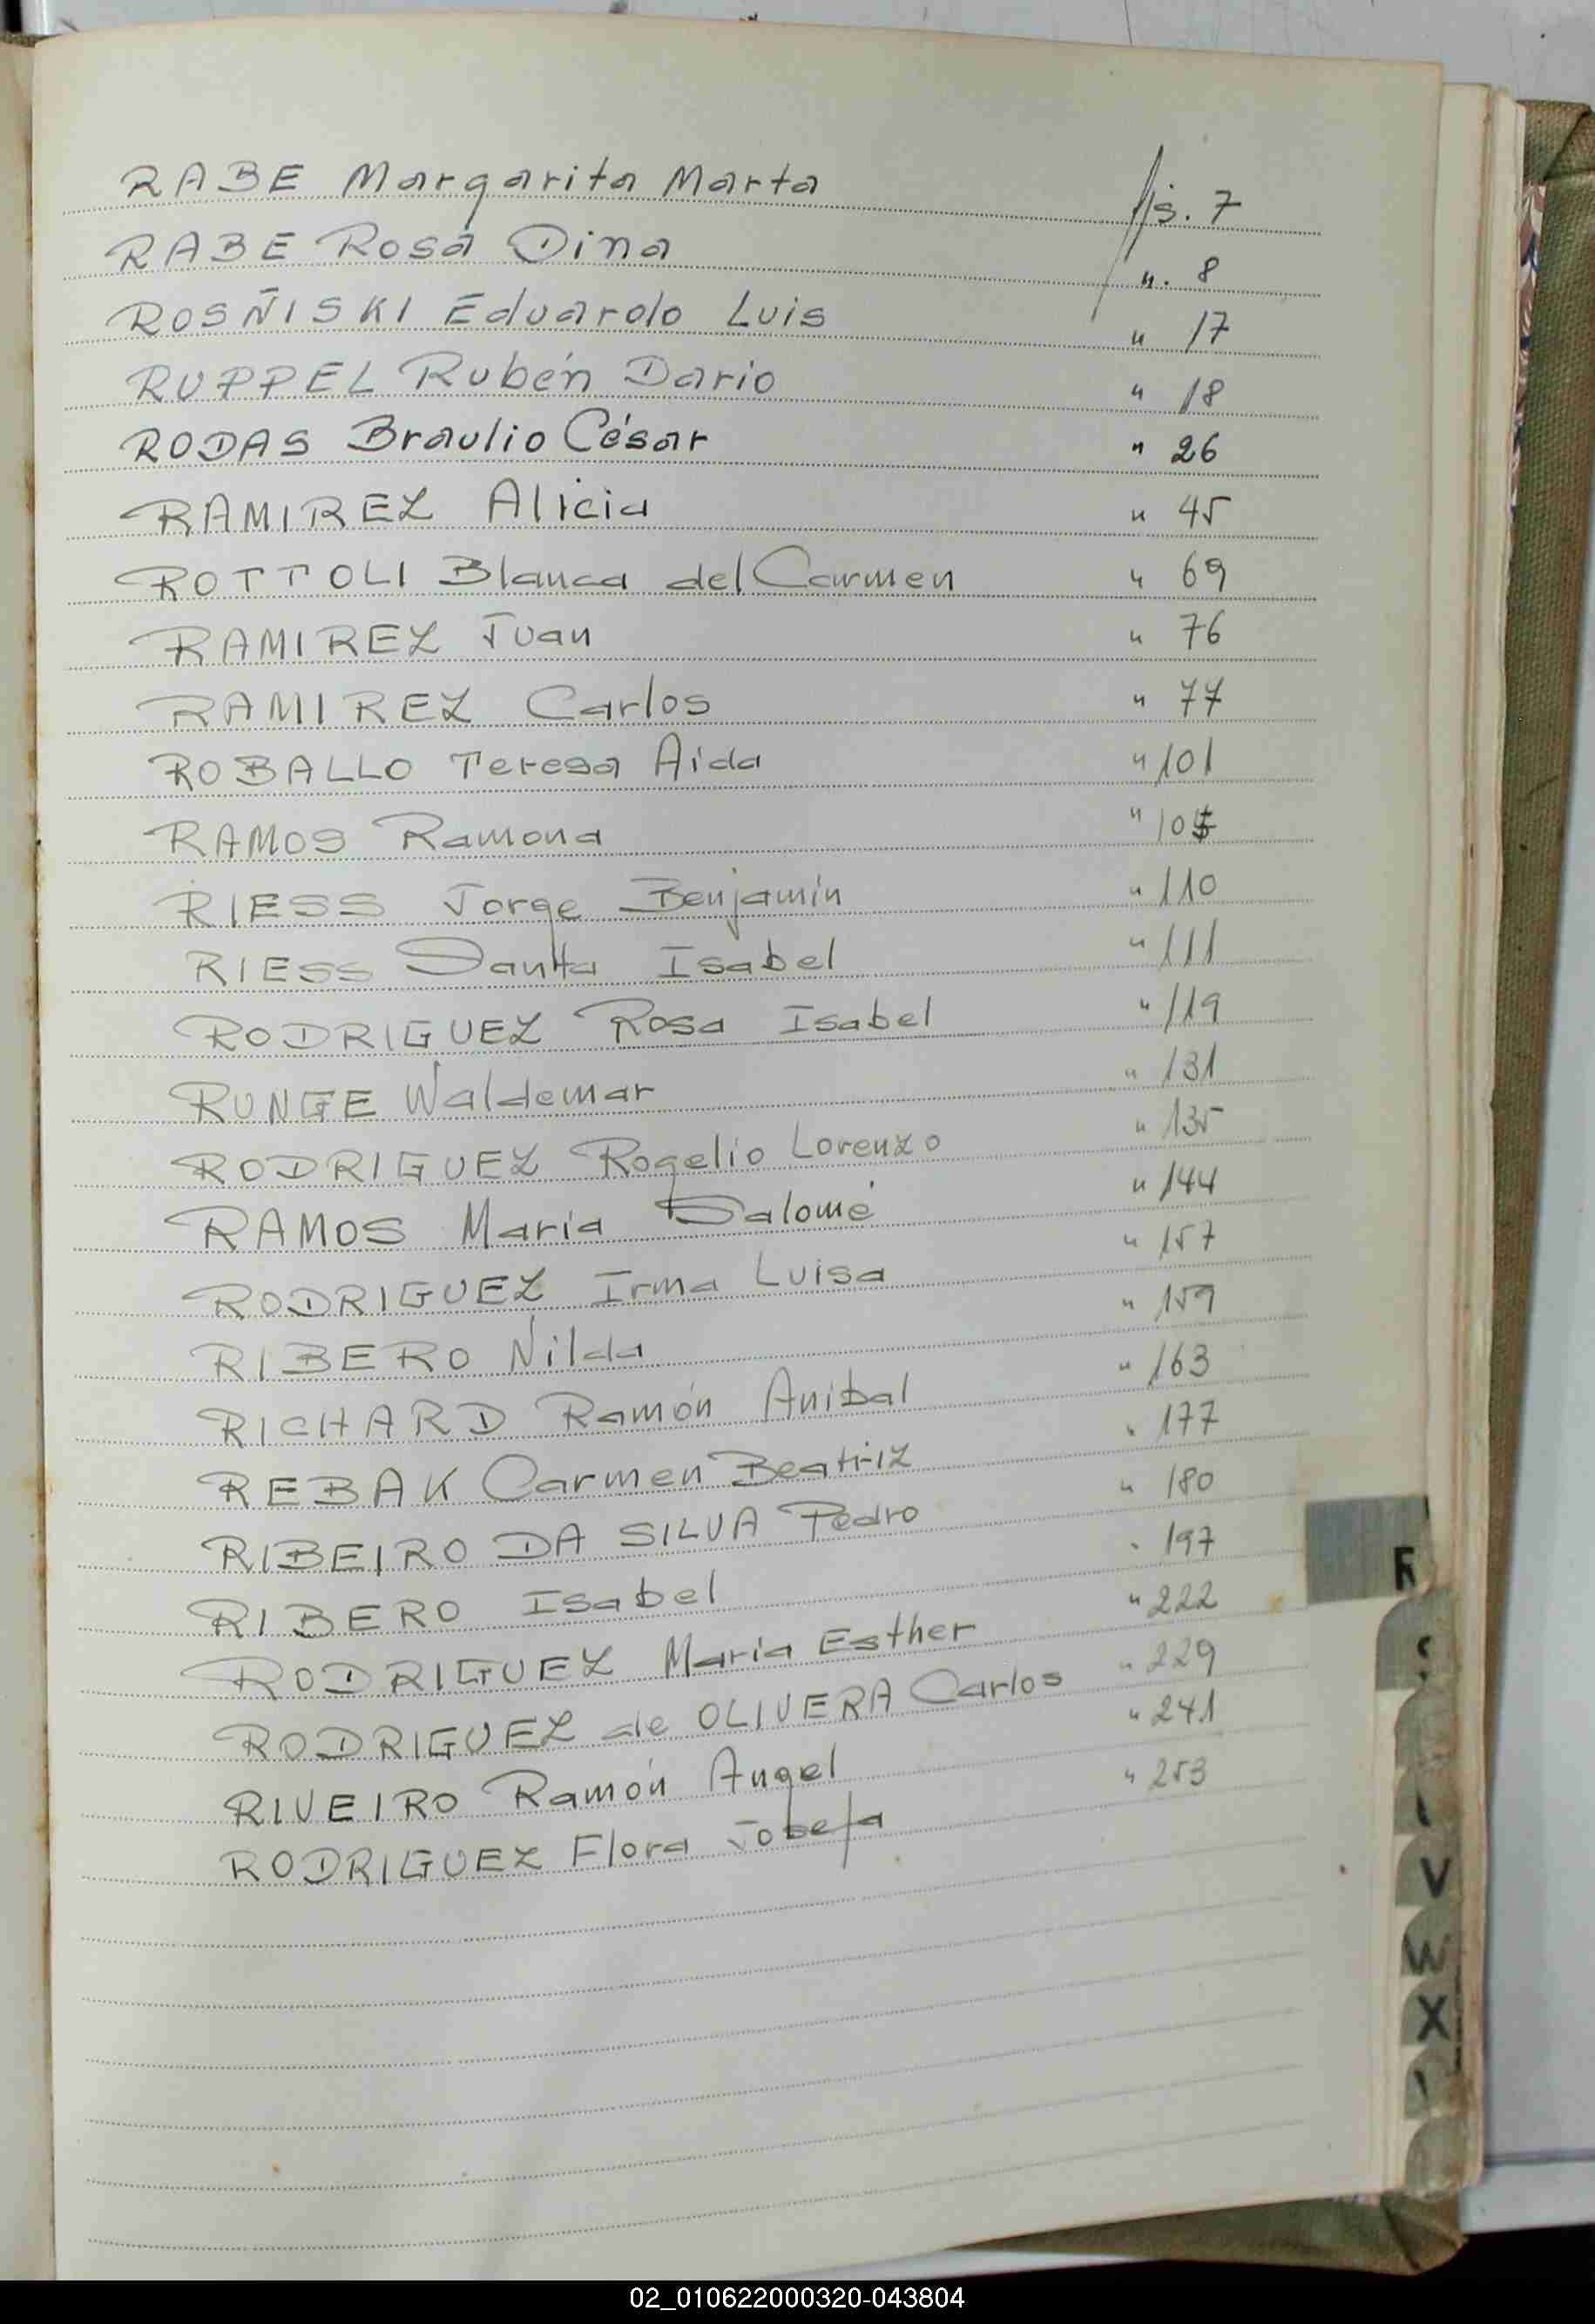 RABE Margarita Marta fjs. 7
RABE Rosa Dina ". 8
ROSÑISKI Eduardo Luis " 17
RUPPEL Rubén Dario " 18
RODAS Braulio César " 26
RAMIREZ Alicia " 45
ROTTOLI Blanca del Carmen " 69
RAMIREZ Juan " 76
RAMIREZ Carlos " 77
ROBALLO Teresa Aida " 101
RAMOS Ramona "
RIESS Jorge Benjamín " 110
RIESS Santa Isabel " 111
RODRIGUEZ Rosa Isabel " 119
RUNGE Waldemar " 131
RODRIGUEZ Rogelio Lorenzo " 135
RAMOS María Salomé " 144
RODRIGUEZ Irma Luisa " 157
RIBERO Nilda " 159
RICHARD Ramón Anibal " 163
REBAK Carmen Beatriz " 177
RIBEIRO DA SILVA Pedro " 180
RIBERO Isabel " 197
RODRIGUEZ María Esther " 222
RODRIGUEZ de OLIVERA Carlos " 229
RIVEIRO Ramón Angel " 241
RODRIGUEZ Flora Josefa " 253
R
V
W
X
02_010622000320-043804